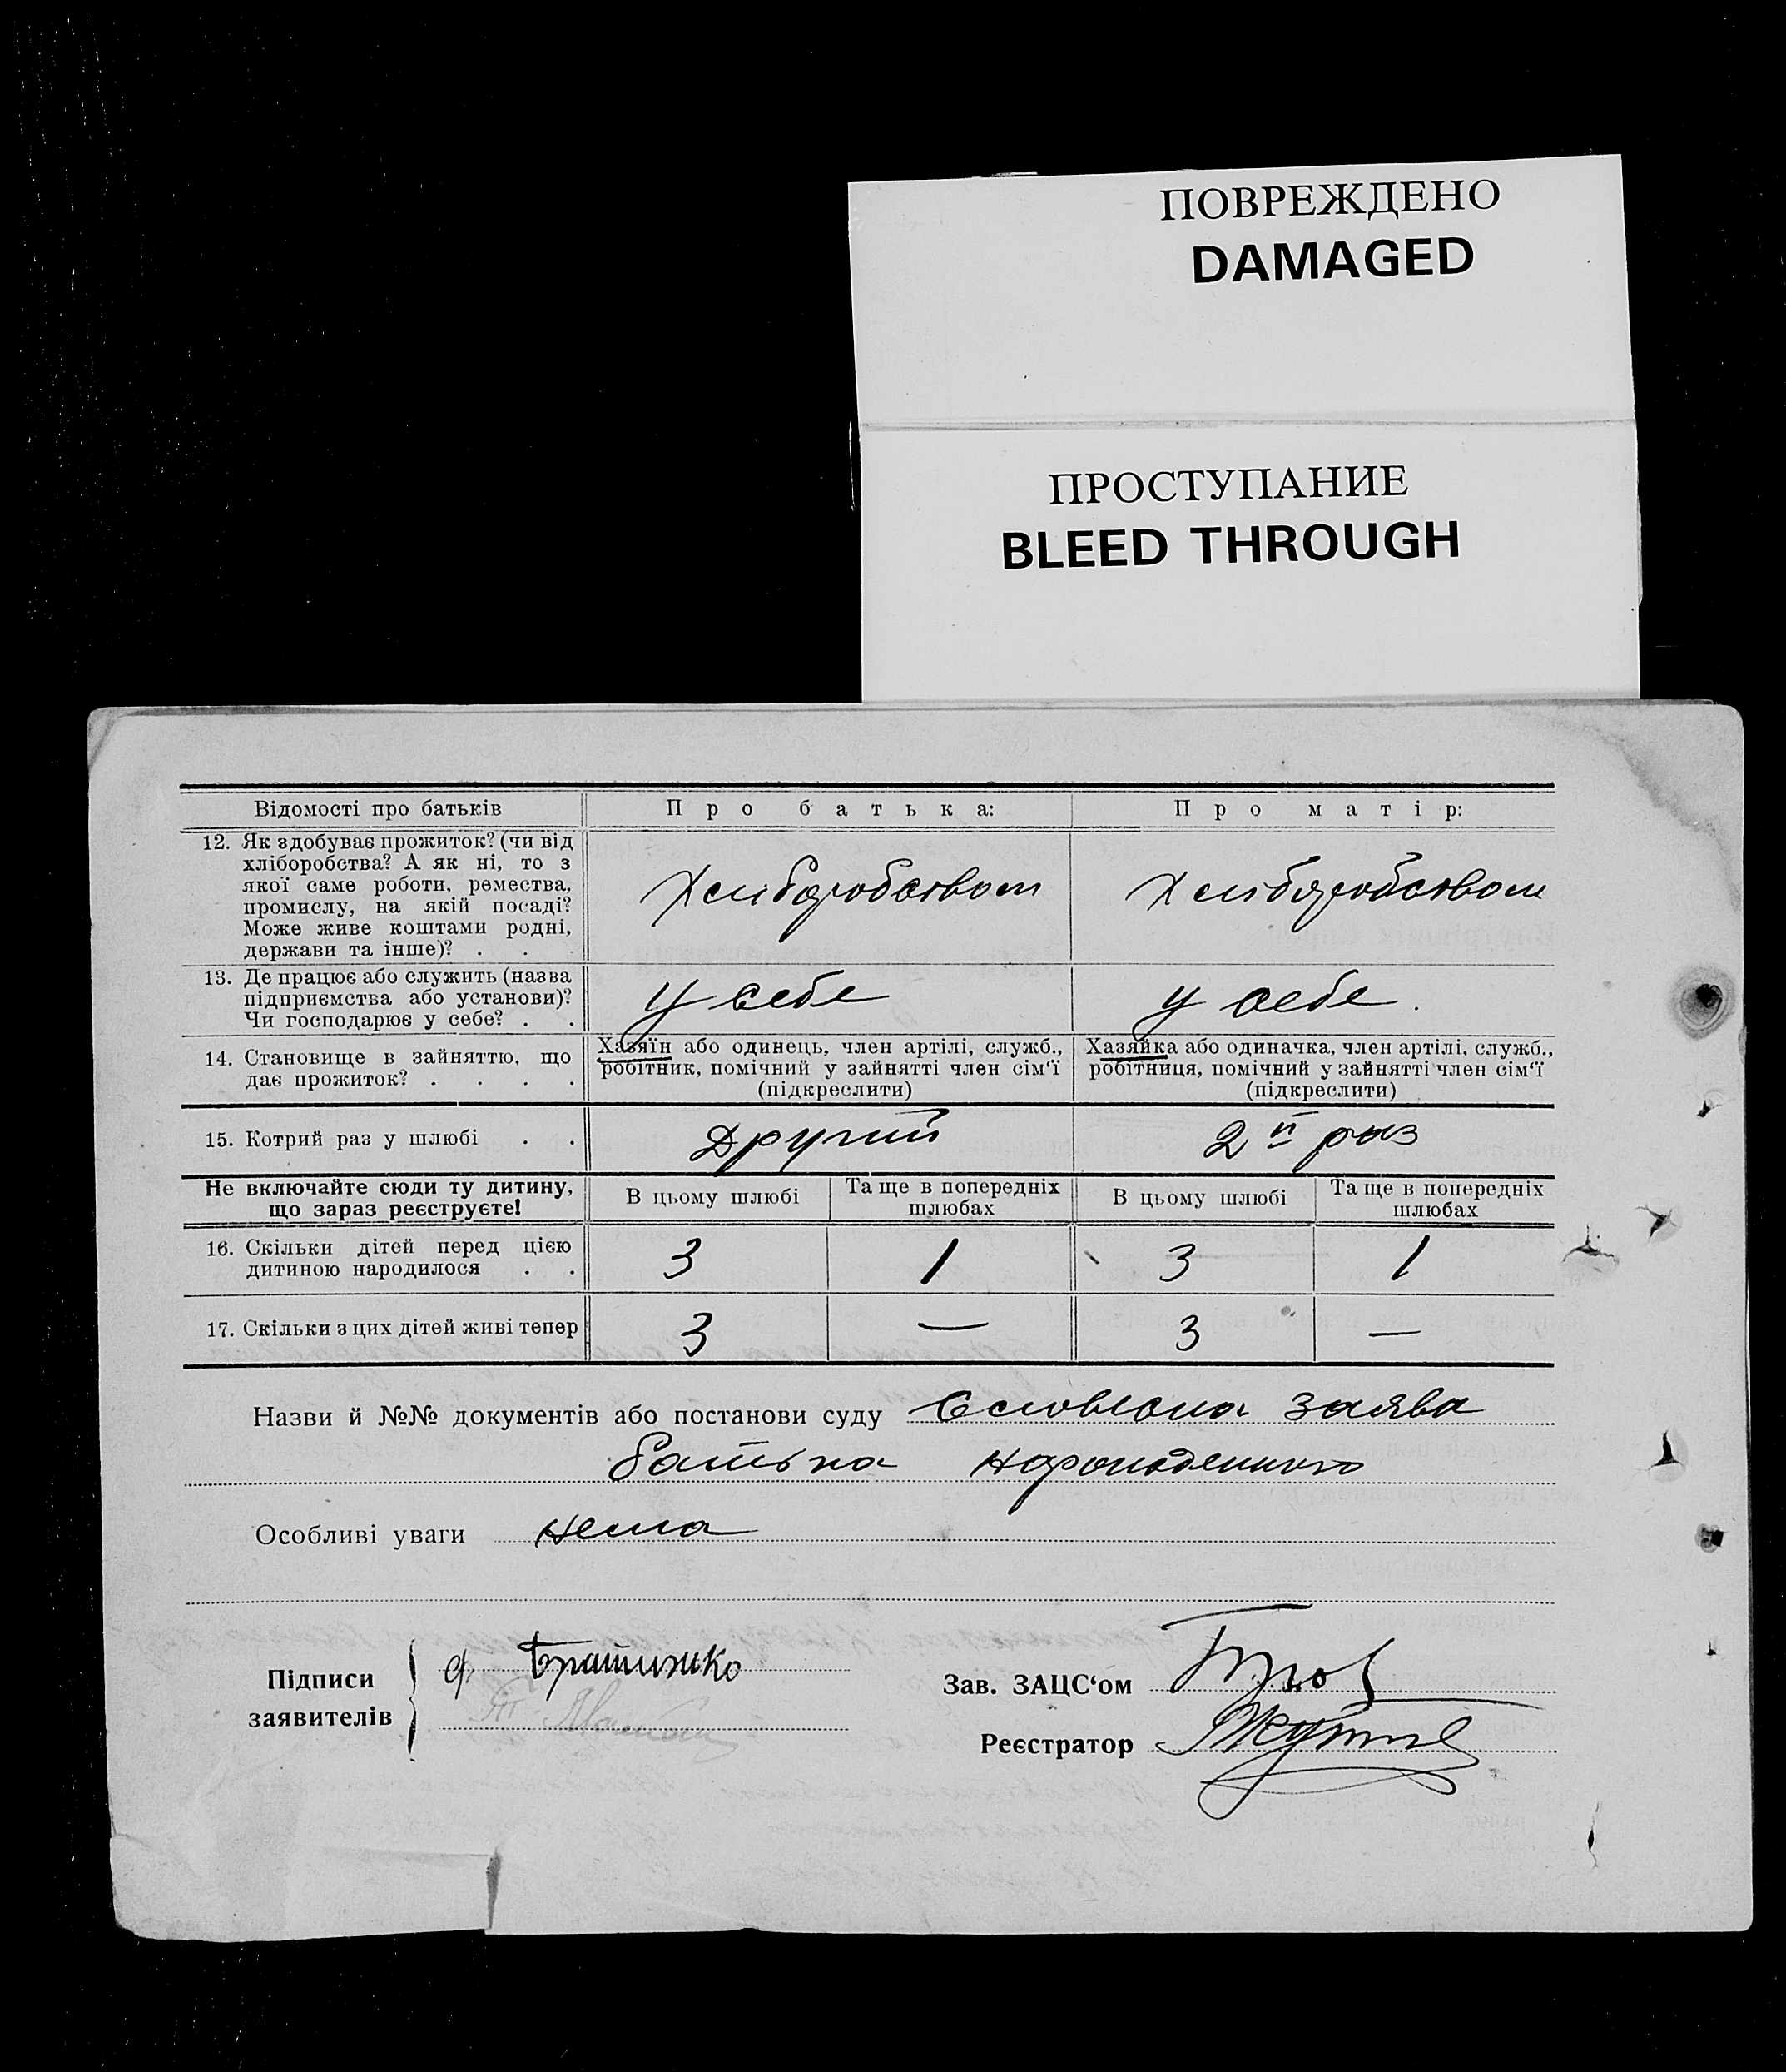 ПОВРЕЖДЕНО
DAMAGED
ПРОСТУПАНИЕ
BLEED THROUGH
Відомості про батьків
Про батька:
Про матір:
12. Як здобуває прожиток? (чи від
хліборобства? А як ні, то з
якої саме роботи, ремества,
промислу, на якій посаді?
Може живе коштами родні,
держави та інше)? . . .
Хліборобством
Хліборобством
13. Де працює або служить (назва
підприємства або установи)?
Чи господарює у себе? . .
у себе
у себе.
14. Становище в зайняттю, що
дає прожиток? . . . .
Хазяїн або одинець, член артілі, служб.,
робітник, помічний у зайнятті член сім‘ї
(підкреслити)
Хазяйка або одиначка, член артілі, служб.,
робітниця, помічний у зайнятті член сім‘ї
(підкреслити)
15. Котрий раз у шлюбі . .
Другий
2й раз
Не включайте сюди ту дитину,
що зараз реєструєте!
В цьому шлюбі
Та ще в попередніх
шлюбах
В цьому шлюбі
Та ще в попередніх
шлюбах
16. Скільки дітей перед цією
дитиною народилося . .
3
1
3
1
17. Скільки з цих дітей живі тепер
3
—
3
—
Назви й №№ документів або постанови суду Словесна заява
батька народженного
Особливі уваги нема
Підписи
заявителів
Зав. ЗАЦС‘ом
Реєстратор